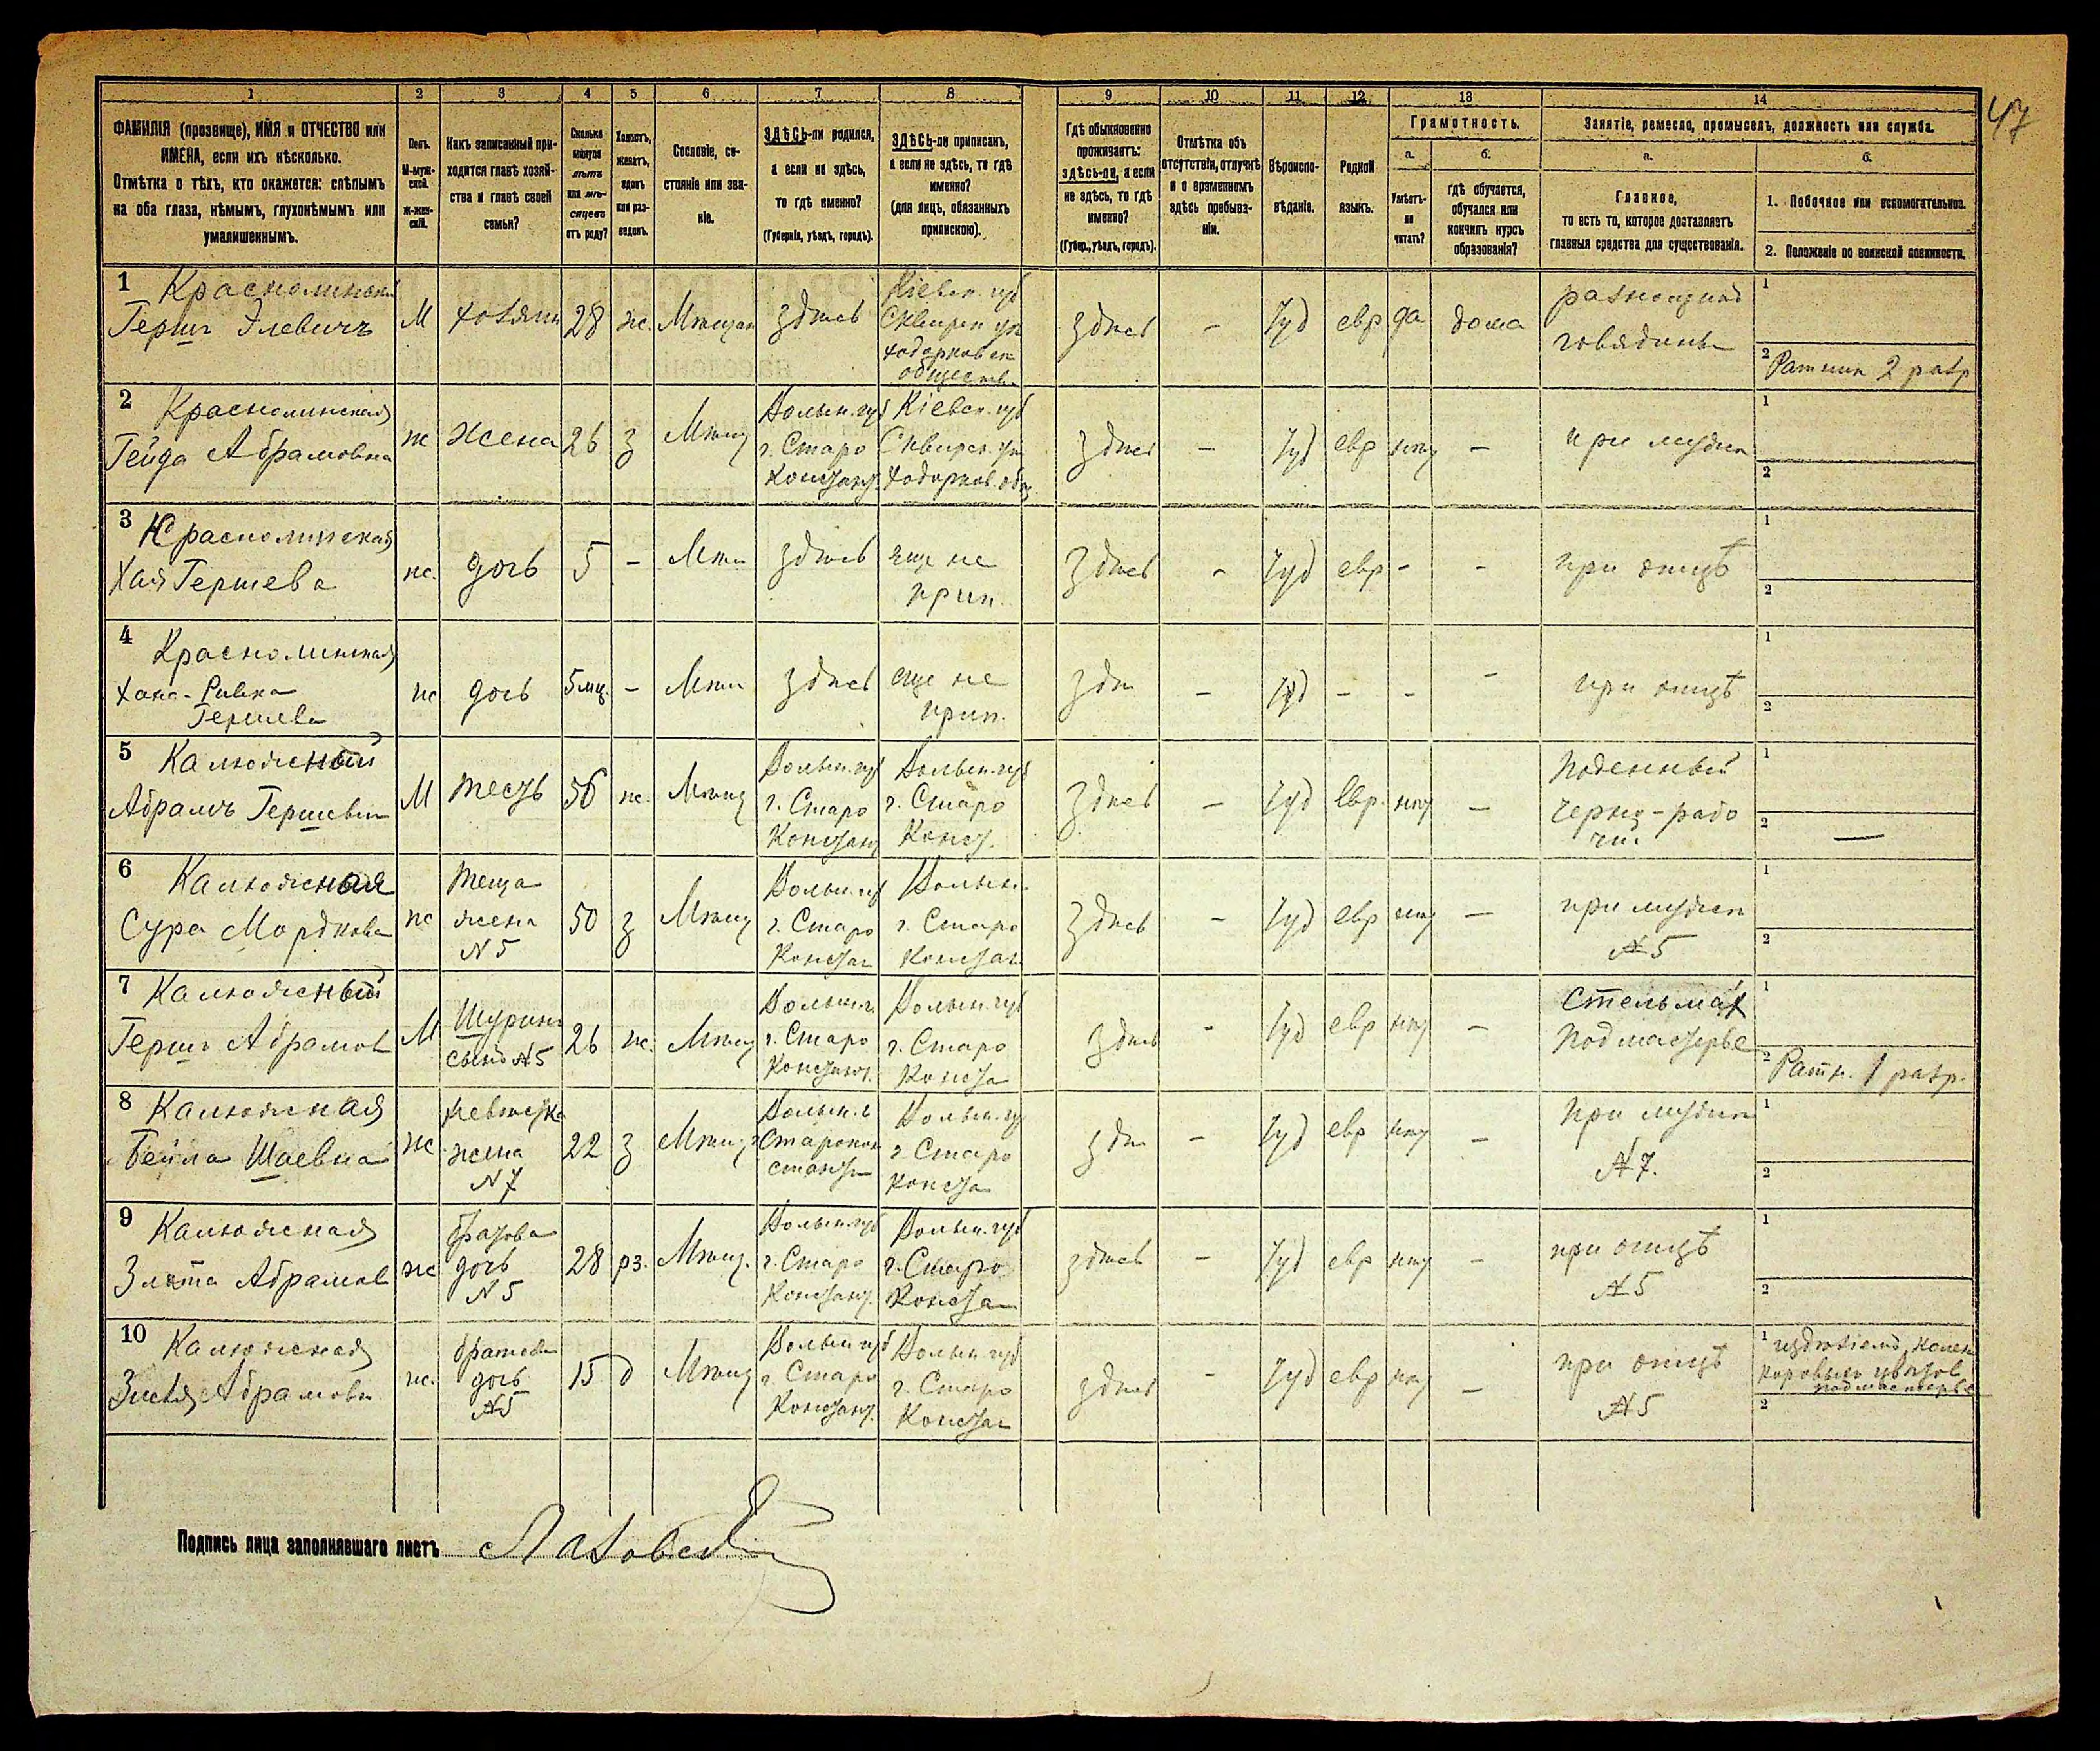 47
1 2 3 4 5 6 7 8 9 10 11 12 13 14
ФАМИЛІЯ (прозвище), ИМЯ и ОТЧЕСТВО или
ИМЕНА, если ихъ нѣсколько.
Отмѣтка о тѣхъ, кто окажется: слѣпымъ
на оба глаза, нѣмымъ, глухонѣмымъ или
умалишеннымъ.
Полъ.
М-муж-
ской.
Ж-жен-
скій.
Какъ записанный при-
ходится главѣ хозяй-
ства и главѣ своей
семьи?
Сколько
минуло
лѣтъ
или мѣ-
сяцевъ
отъ роду?
Холостъ,
женатъ,
вдовъ
или раз-
веденъ.
Сословіе, со-
стояніе или зва-
ніе.
ЗДѢСЬ-ли родился,
а если не здѣсь,
то гдѣ именно?
(Губернія, уѣздъ, городъ).
ЗДѢСЬ-ли приписанъ,
а если не здѣсь, то гдѣ
именно?
(для лицъ, обязанныхъ
припискою).
Гдѣ обыкновенно
проживаетъ:
здѣсь-ли, а если
не здѣсь, то гдѣ
именно?
(Губер., уѣздъ, городъ).
Отмѣтка объ
отсутствіи, отлучкѣ
и о временномъ
здѣсь пребыва-
ніи.
Вѣроиспо-
вѣданіе.
Родной
языкъ.
Грамотность.
а. б.
Умѣетъ-
ли
читать?
гдѣ обучается,
обучался или
кончилъ курсъ
образованія?
Занятіе, ремесло, промыселъ, должность или служба.
а. б.
Главное,
то есть то, которое доставляетъ
главныя средства для существованія.
1. Побочное или вспомогательное.
2. Положеніе по воинской повинности.
1 Краснолинскій
Гершъ Элевичъ
М
хозяинъ
28
ж.
Мѣщан
здѣсь
Кіевск. губ
Сквирск уѣз
Ходорковск
обществ.
здѣсь
–
Іуд
евр
да
дома
разнощикъ
говядины
1
2 Ратник 2 разр
2 Краснолинская
Гейда Абрамовна
ж
жена
26
з
Мѣщ
Волын. губ
г. Старо
Констант.
Кіевск. губ
Сквирск. уѣз
Ходорков. общ
здѣсь
–
Іуд
евр
нѣт
–
при мужѣ
1
2
3 Краснолинская
Хая Гершева
ж.
дочь
5
–
Мѣщ
здѣсь
еще не
прип.
здѣсь
–
Іуд
евр
–
–
при отцѣ
1
2
4 Краснолинская
Хана-Ривка
Гершева
ж
дочь
5 мц.
–
Мѣщ
здѣсь
еще не
прип.
здѣ
–
Іуд
–
–
–
при отцѣ
1
2
5 Калюжный
Абрамъ Гершевич
М
тесть
56
ж.
Мѣщ
Волын. губ
г. Старо
Констант
Волын. губ
г. Старо
Конст.
здѣсь
–
Іуд
Евр.
нѣт
–
Поденный
черно-рабо
чій
1
2 –
6 Калюжная
Сура Мордкова
ж
теща
жена
N 5
50
з
Мѣщ
Волын. губ
г. Старо
Констан
Волын.
г. Старо
Констан.
здѣсь
–
Іуд
евр
нѣт
–
при мужѣ
№ 5
1
2
7 Калюжный
Гершъ Абрамов
М
Шуринъ
сынъ № 5
26
ж.
Мѣщ
Волын. г.
г. Старо
Констант.
Волын. губ
г. Старо
Конста
здѣсь
–
Іуд
евр
нѣт
–
Стельмах
Подмастерье
1
2 Ратн. 1 разр.
8 Калюжная
Бейла Шаевна
ж
невѣстка
жена
N 7
22
з
Мѣщ
Волын. г
Старокон
стант
Волын. гу
г. Старо
Конста
здѣ
–
Іуд
евр
нѣт
–
При мужѣ
№ 7.
1
2
9 Калюжная
Злата Абрамов
ж
дочь
N 5
28
рз.
Мѣщ.
Волын. губ
г. Старо
Констант.
Волын. губ
г. Старо
Констан
здѣсь
–
Іуд
евр
нѣт
–
при отцѣ
№ 5
1
2
10 Калюжная
Абрамовн
ж.
дочь
№ 5
15
д
Мѣщ
Волын губ
г. Старо
Констант.
Волын губ
г. Старо
Констан
здѣсь
–
Іуд
евр
нѣт
–
при отцѣ
№ 5
1
подмастерье
2
Подпись лица заполнявшаго листъ